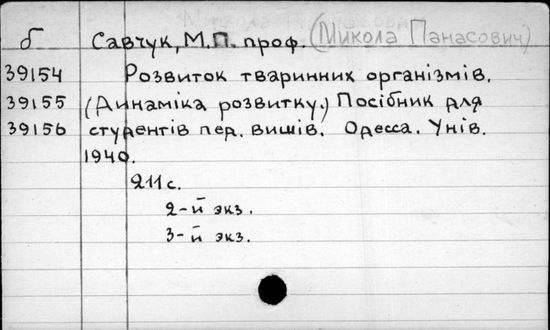 б Савчук, М.П. проф. (Микола Панасович)
39154 Розвиток тваринних організмів.
39155 (Динаміка розвитку.) Посібник для
39156 студентів пед. вишів. Одесса. Унів.
1940.
211 с.
2-й экз.
3-й экз.